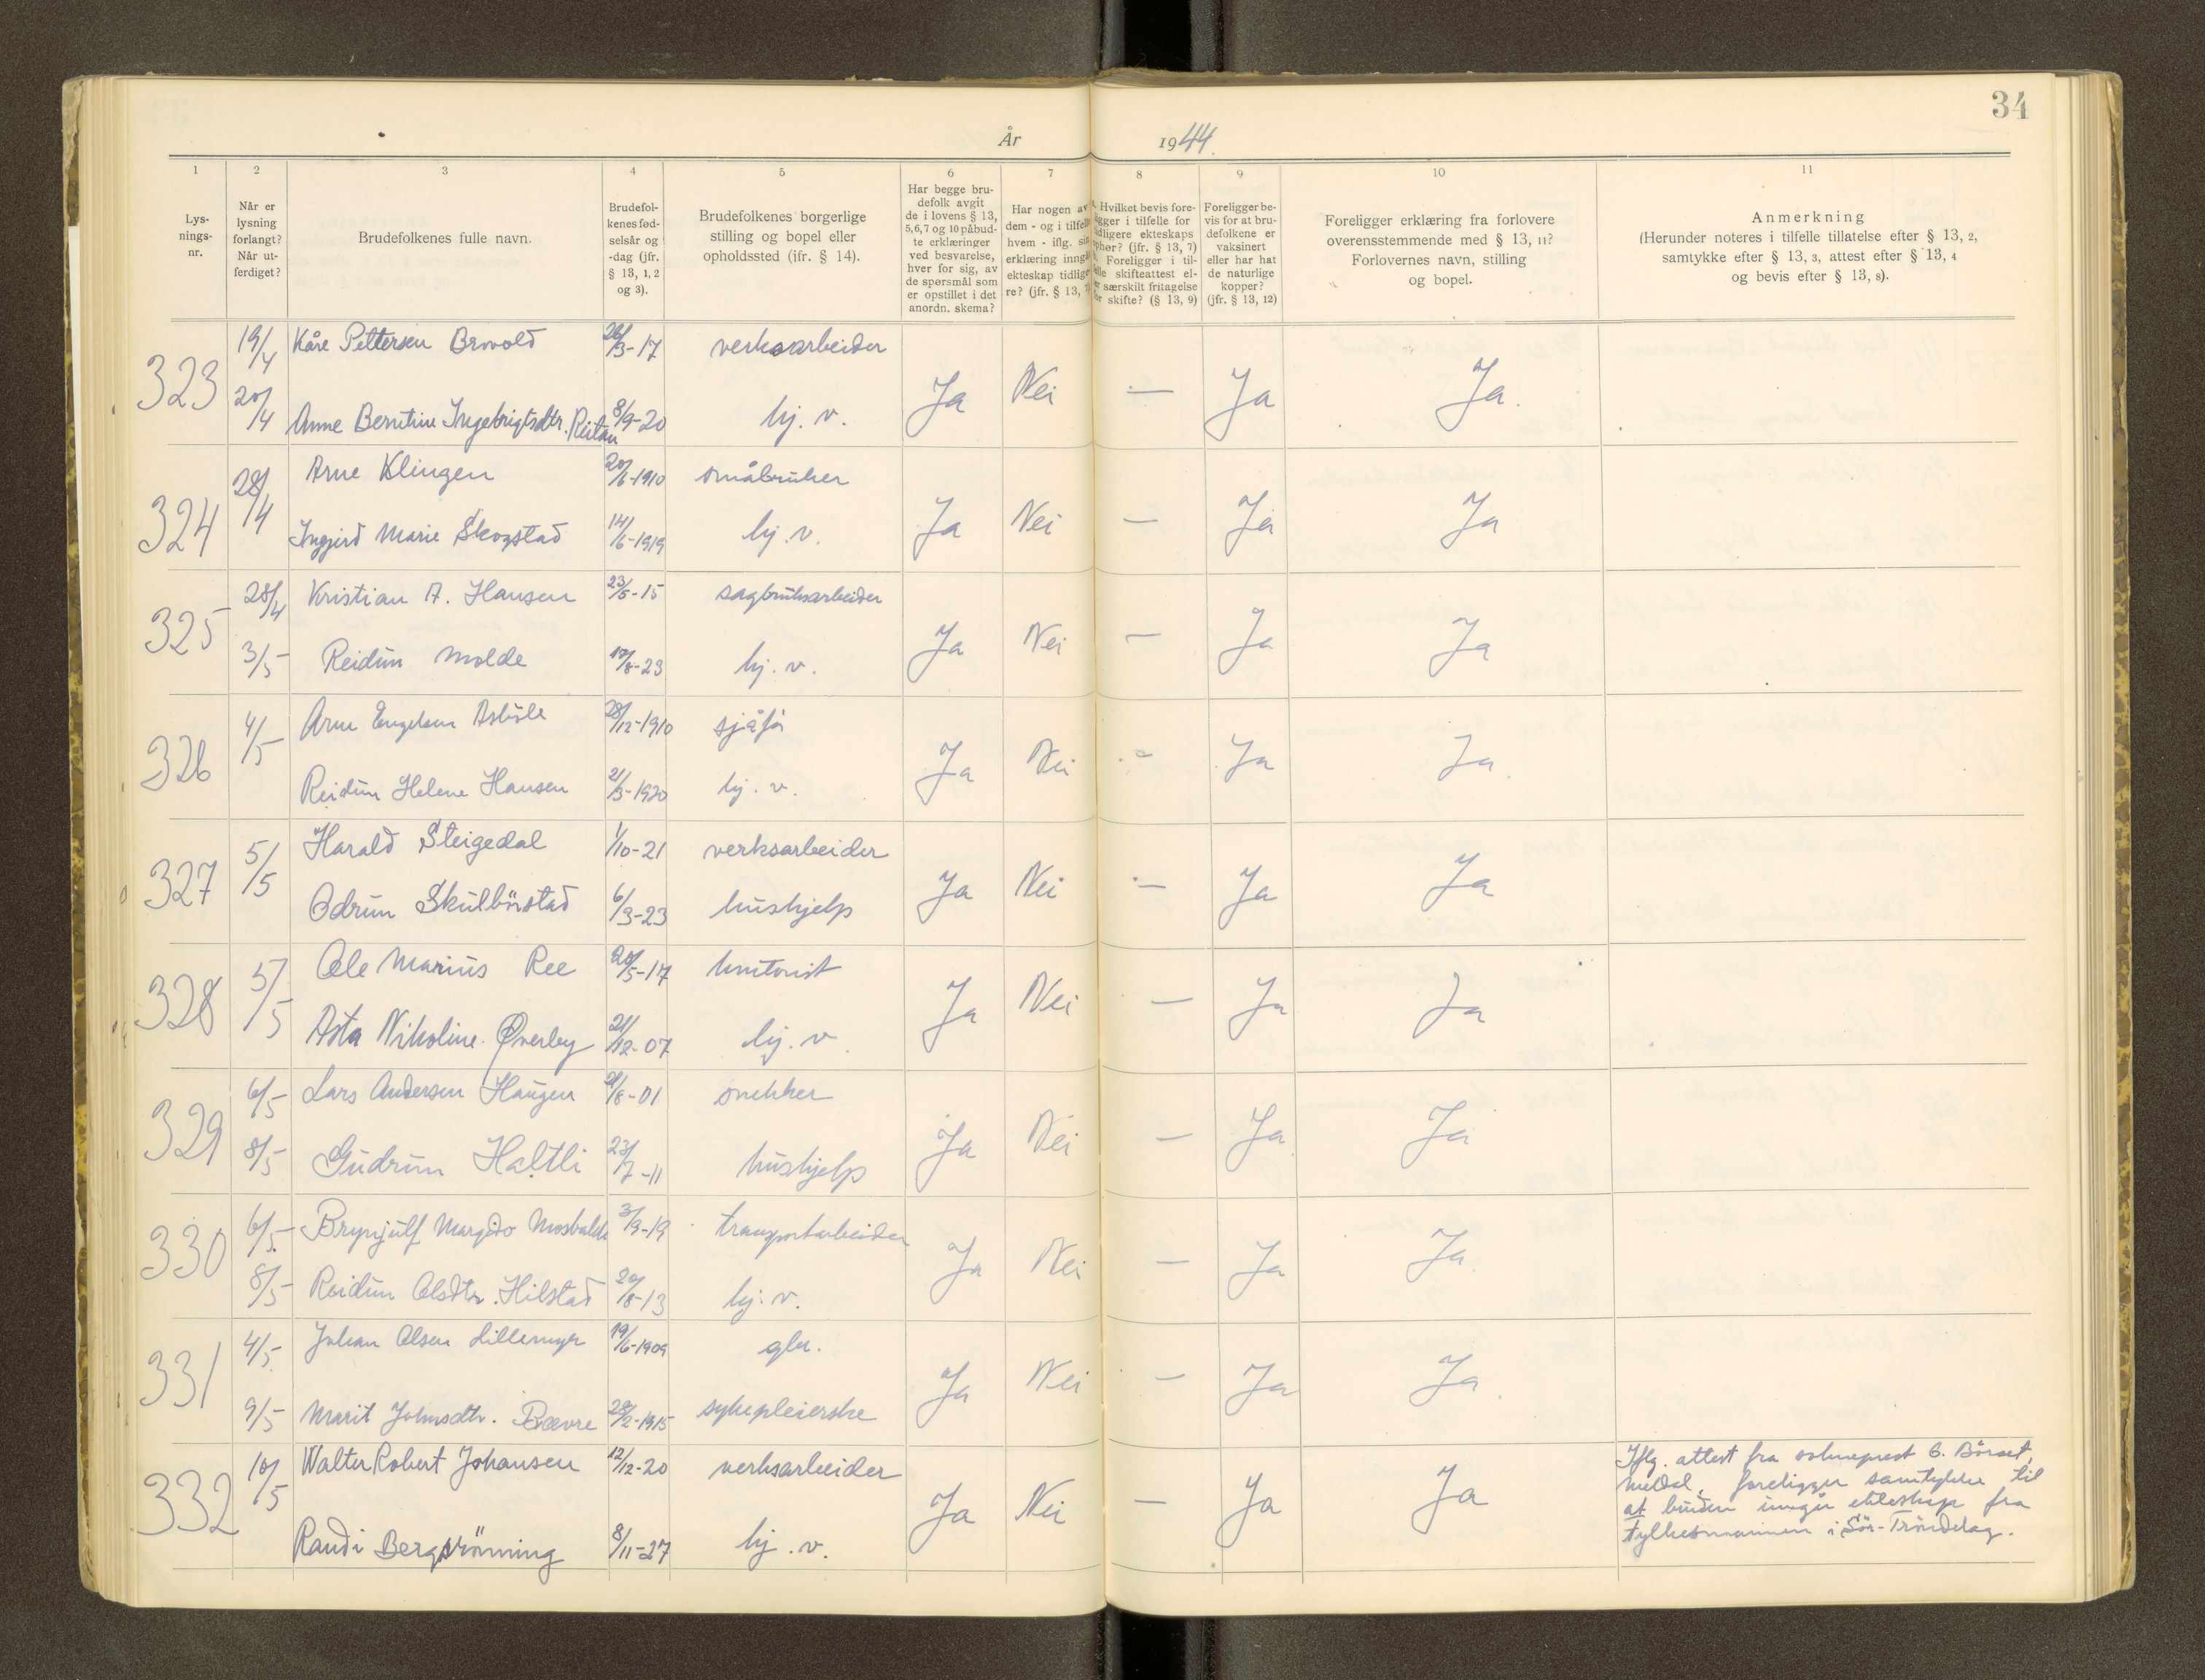 34
År 1944.
1 2 3 4 5 6 7 8 9 10 11
Lysnings-nr.
Når er lysning forlangt? Når utferdiget?
Brudefolkenes fulle navn.
Brudefolkenes fødselsår og -dag (jfr. § 13, 1, 2 og 3).
Brudefolkenes borgerlige stilling og bopel eller opholdssted (ifr. § 14).
Har begge brudefolk avgit de i lovens § 13, 5, 6, 7 og 10 påbudte erklæringer ved besvarelse, hver for sig, av de spørsmål som er opstillet i det anordn. skema?
Har nogen av dem - og i tilfelle hvem - iflg. sin erklæring inngå ekteskap tidligere? (jfr. § 13,
Hvilket bevis foreligger i tilfelle for tidligere ekteskaps ophør? (jfr. § 13, 7) Foreligger i tilfelle skifteattest eller særskilt fritagelse for skifte? (§ 13, 9)
Foreligger bevis for at brudefolkene er vaksinert eller har hat de naturlige kopper? (jfr. § 13, 12)
Foreligger erklæring fra forlovere overensstemmende med § 13, 11? Forlovernes navn, stilling og bopel.
Anmerkning (Herunder noteres i tilfelle tillatelse efter § 13, 2, samtykke efter § 13, 3, attest efter § 13, 4 og bevis efter § 13, 8).
323 19/4 Kåre Pettersen Brovold 26/3-17 verksarbeider Ja Nei — Ja Ja.
20/4 Anne Berntine Ingebrigtsdtr. Reitan 8/9-20 hj. v.
324 28/4 Arne Klingen 20/6-1910 småbruker Ja Nei — Ja Ja
Ingjerd Marie Skogstad 14/6-1919 hj. v.
325 28/4 Kristian A. Hansen 23/5-15 sagbruksarbeider Ja Nei — Ja Ja
3/5 Reidun Molde 8-23 hj. v.
326 4/5 Arne Engelsen 28/12-1910 sjåfør Ja Nei — Ja Ja
Reidun Helene Hansen 21/3-1920 hj. v.
327 5/5 Harald Steigedal 1/10-21 verksarbeider Ja Nei — Ja Ja
Odrun Skulbörstad 6/3-23 hushjelp
328 5/5 Ole Marius Ree 20/5-17 kontorist Ja Nei — Ja Ja
Asta Nikoline Øverby 21/12-07 hj. v.
329 6/5 Lars Andersen Haugen 21/8-01 snekker Ja Nei — Ja Ja
8/5 Gudrun Haltli 23/7-11 hushjelp
330 6/5 Brynjulf Margido 3/9-19 transportarbeider Ja Nei — Ja Ja
8/5 Reidun Olsdtr. Hilstad 20/8-13 hj. v.
331 4/5 Johan Olsen Lillemyr 19/6-1909 gbr. Ja Nei — Ja Ja
9/5 Marit Johnsdtr. Bævre 28/2-1915 sykepleierske
332 10/5 Walter Robert Johansen 12/12-20 verksarbeider Ja Nei — Ja Ja
Randi Bergsrönning 8/11-27 hj. v.
Iflg. attest fra sokneprest B. Börset,
Meldal, foreligger samtykke til
at bruden inngår ekteskap fra
fylkesmannen i Sör-Tröndelag.